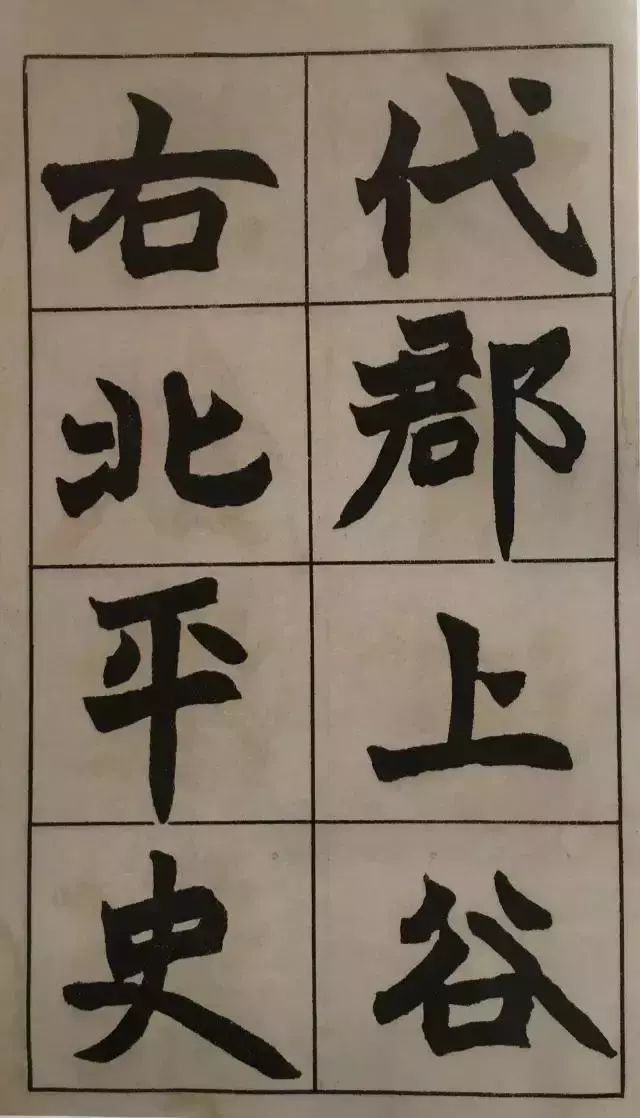 代郡上谷
右北平史